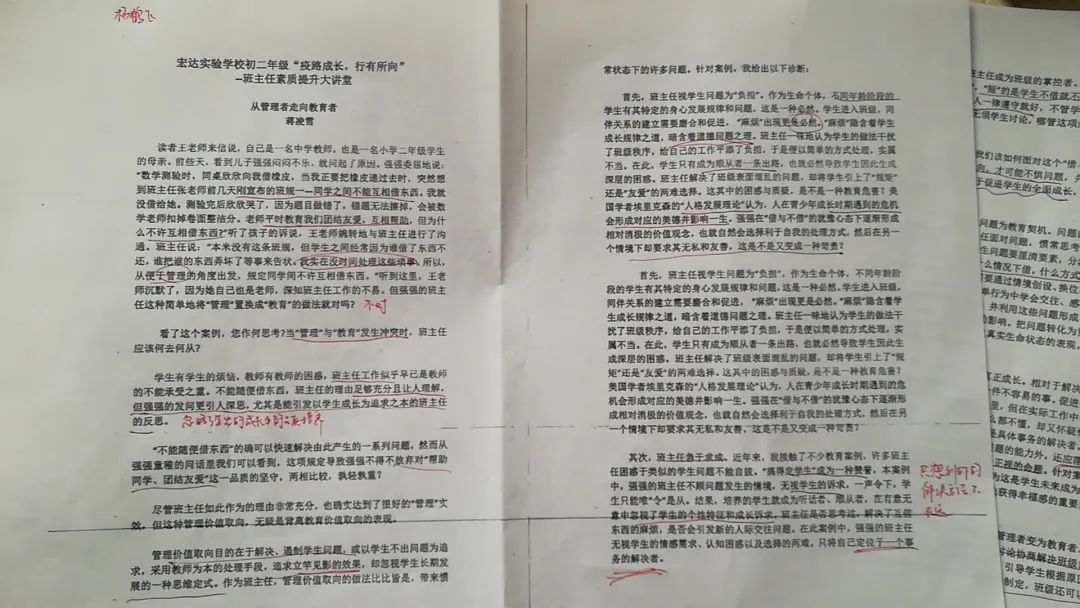 杨鹤飞
宏达实验学校初二年级“疫路成长，行有所向”
--班主任素质提升大讲堂
从管理者走向教育者
蒋凌雪
读者王老师来信说，自己是一名中学教师，也是一名小学二年级学生
的母亲。前些天，看到儿子强强闷闷不乐，就问起了原因。强强委屈地说：
“数学测验时，同桌欣欣向我借橡皮，当我正要把橡皮递过去时，突然想
到班主任张老师前几天刚宣布的班规——同学之间不能互相借东西。我就
没借给她。测验完后欣欣哭了，因为题目做错了，错题无法擦掉，会被数
学老师扣掉卷面整洁分。老师平时教育我们团结友爱，互相帮助，但为什
么不许互相借东西？”听了孩子的诉说，王老师婉转地与班主任进行了沟
通。班主任说：“本来没有这条班规，但学生之间经常因为谁借了东西不
还，谁把谁的东西弄坏了等事来告状。我实在没时间处理这些琐事，所以，
从便于管理的角度出发，规定同学间不许互相借东西。”听到这里，王老
师沉默了，因为她自己也是老师，深知班主任工作的不易。但强强的班主
任这种简单地将“管理”置换成“教育”的做法就对吗？
不对
看了这个案例，您作何思考？当“管理”与“教育”发生冲突时，班主任
应该何去何从？
学生有学生的烦恼，教师有教师的困惑，班主任工作似乎早已是教师
的不能承受之重。不能随便借东西，班主任的理由足够充分且让人理解，
但强强的发问更引人深思，尤其是能引发以学生成长为追求之本的班主任
的反思。
“不能随便借东西”的确可以快速解决由此产生的一系列问题，然而从
强强童稚的问话里我们可以看到，这项规定导致强强不得不放弃对“帮助
同学、团结友爱”这一品质的坚守，两相比较，孰轻孰重？
尽管班主任如此作为的理由非常充分，也确实达到了很好的“管理”实
效，但这种管理价值取向，无疑是背离教育价值取向的表现。
管理价值取向目的在于解决、遏制学生问题，或以学生不出问题为追
求，采用教师为本的处理手段，追求立竿见影的效果，却忽视学生长期发
展的一种思维定式。作为班主任，管理价值取向的做法比比皆是，带来惯
常状态下的许多问题。针对案例，我给出以下诊断：
首先，班主任视学生问题为“负担”。作为生命个体，不同年龄阶段的
学生有其特定的身心发展规律和问题，这是一种必然。学生进入班级，同
伴关系的建立需要磨合和促进，“麻烦”出现更是必然。“麻烦”隐含着学生
成长规律之道，暗含着道德问题之理。班主任一味地认为学生的做法干扰
了班级秩序，给自己的工作平添了负担，于是便以简单的方式处理，实属
不当。在此，学生只有成为顺从者一条出路，也就必然导致学生因此生成
深层的困惑。班主任解决了班级表面混乱的问题，却将学生引上了“规矩”
还是“友爱”的两难选择。这其中的困惑与质疑，是不是一种教育危害？美
国学者埃里克森的“人格发展理论”认为，人在青少年成长时期遇到的危机
会形成对应的美德并影响一生。强强在“借与不借”的犹豫心态下逐渐形成
相对消极的价值观念，也就自然会选择利于自我的处理方式，然后在另一
个情境下却要求其无私和友善，这是不是又变成一种苛责？
首先，班主任视学生问题为“负担”。作为生命个体，不同年龄阶
段的学生有其特定的身心发展规律和问题，这是一种必然。学生进入班级，
同伴关系的建立需要磨合和促进，“麻烦”出现更是必然。“麻烦”隐含着学
生成长规律之道，暗含着道德问题之理。班主任一味地认为学生的做法干
扰了班级秩序，给自己的工作平添了负担，于是便以简单的方式处理，实
属不当。在此，学生只有成为顺从者一条出路，也就必然导致学生因此生
成深层的困惑。班主任解决了班级表面混乱的问题，却将学生引上了“规
矩”还是“友爱”的两难选择。这其中的困惑与质疑，是不是一种教育危害？
美国学者埃里克森的“人格发展理论”认为，人在青少年成长时期遇到的危
机会形成对应的美德并影响一生。强强在“借与不借”的犹豫心态下逐渐形
成相对消极的价值观念，也就自然会选择利于自我的处理方式，然后在另
一个情境下却要求其无私和友善，这是不是又变成一种苛责？
其次，班主任急于求成。近年来，我接触了不少教育案例，许多班主
任困惑于类似的学生问题不能自拔，“搞得定学生”成为一种赞誉，本案例
中，强强的班主任不顾问题发生的情境，无视学生的诉求，一声令下，学
生只能唯“令”是从。结果，培养的学生就成为听话者、顺从者，在有意无
意中忽视了学生的个性特征和成长诉求。班主任是否思考过，解决了互借
东西的麻烦，是否会引发新的人际交往问题。在此案例中，强强的班主任
无视学生的情感需求、认知困惑以及选择的两难，只将自己定位于一个事
务的解决者。
主任成为班级的掌控者。
，“短”的是学生不借就不
人一律遵守就好，不管学
无须学生讨论，哪管这项
我们该如何面对这个“借
向，才可能不惧问题，并
于促进学生的全面成长，
问题为教育契机。问题的
主任面对问题，惯常思考
生问题要厘清要素，分
什么情况下借，什么方式
要通过情境创设、换位
单行为中学会交往、感
，并利用这些问题形成
影响。把问题转化为
真实生命状态的表现。
真正成长。相对于解决
件不容易的事，促进
里，但在实际工作中
么都不懂，却又怀疑
是具体事务的解决者，
问题的能力外，还应
正视的命题。针对案
为这是学生未来成为
获得幸福感的重要
管理者变为教育者，
讨论协商解决班级
引导学生根据原
制定，班级还可以